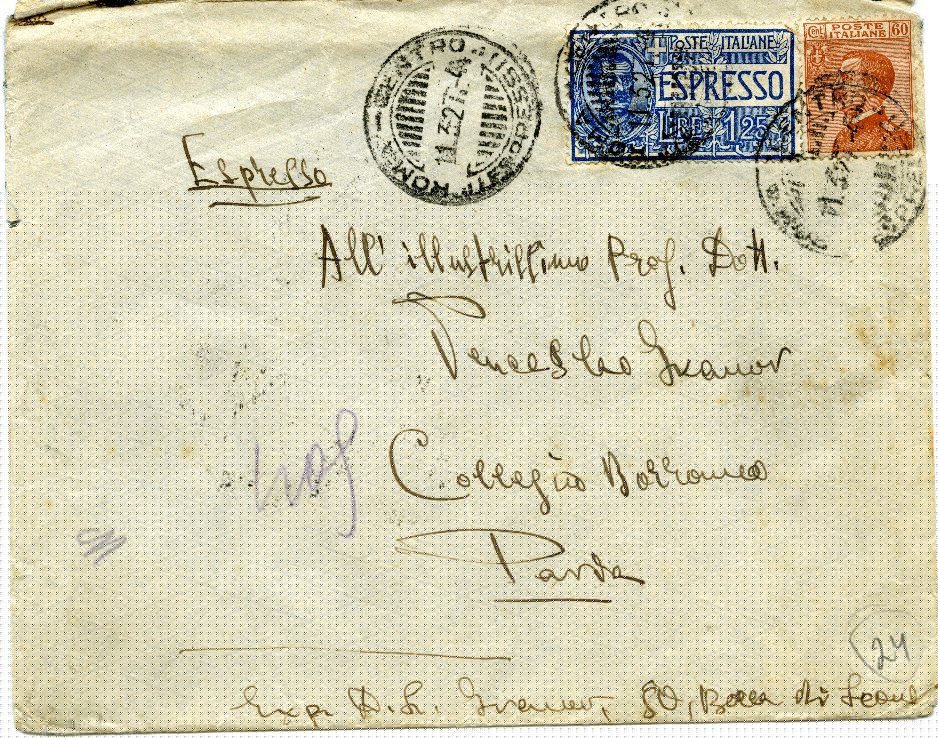 POSTE ITALIANE
ESPRESSO
LIRE 1,25
POSTE
ITALIANE
Cent. 60
ROMA CENTRO
11.3.27
Espresso
All' illustrissimo Prof. Dott.
Venceslao
Collegio Borromeo
Pavia
Exp. D. L. 80, Bocca di Leone
24